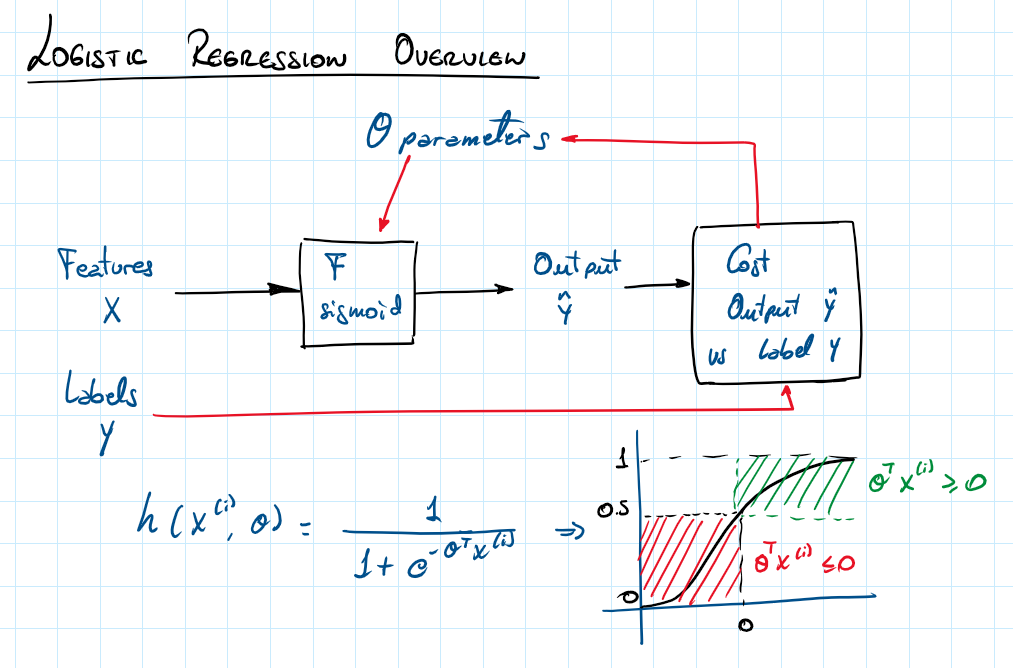 LOGISTIC REGRESSION OVERVIEW
θ parameters
Features
X
F
sigmoid
Output
ŷ
Cost
Output ŷ
vs Label y
Labels
Y
h(x^(i), θ) = 1 / (1 + e^(-θ^T x^(i))) ⇒
1
0.5
0
0
θ^T x^(i) ≥ 0
θ^T x^(i) ≤ 0